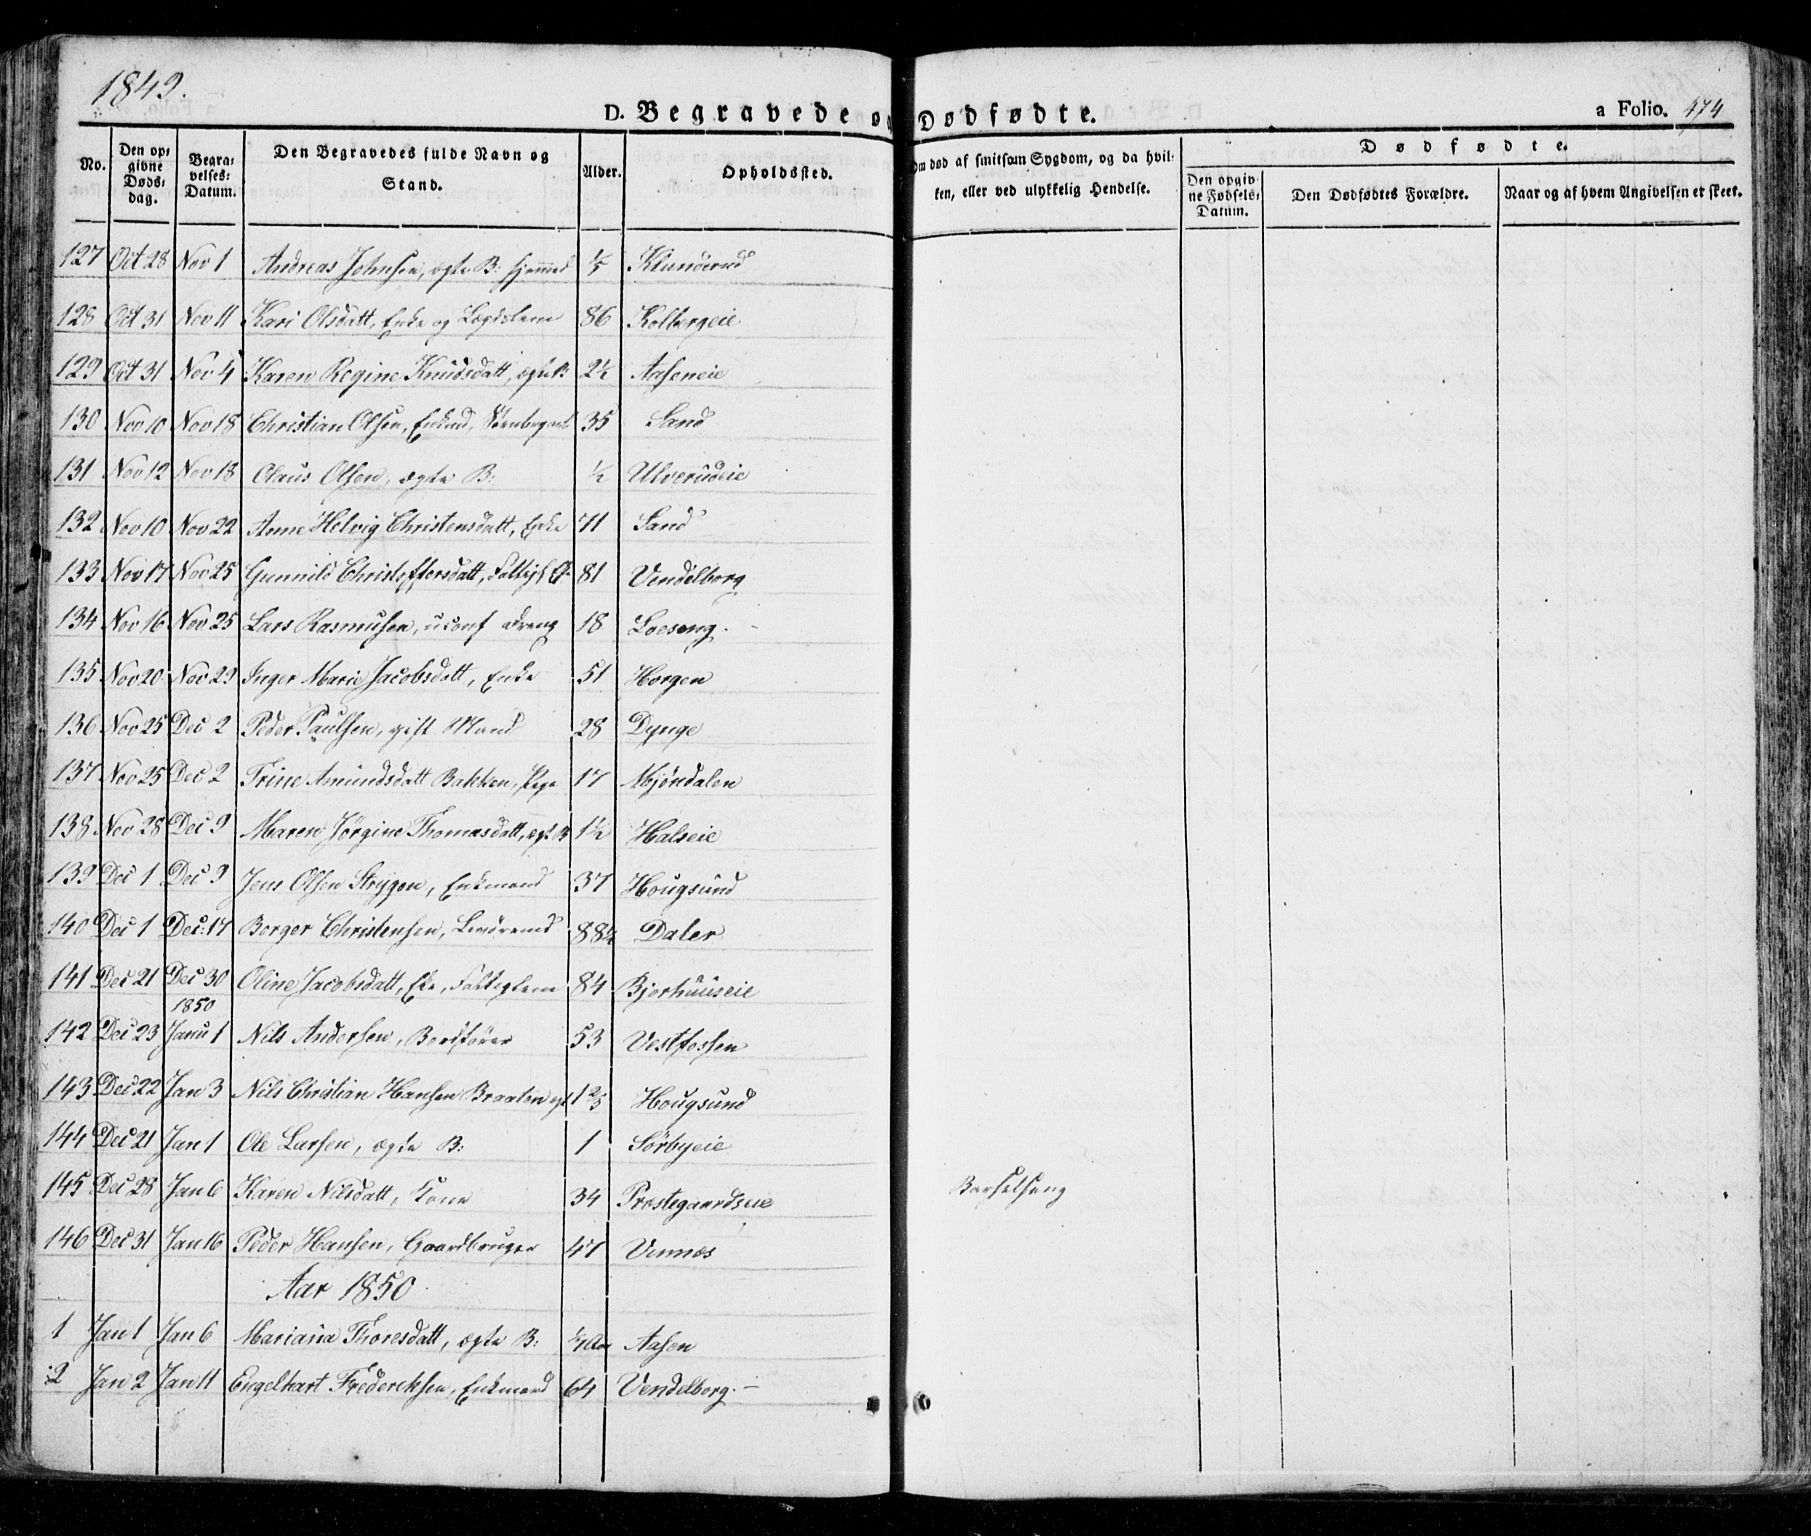 1849.
D. Begravede og Dødfødte.
a Folio. 474
No.
Den opgivne Dødsdag.
Begravelses-Datum.
Den Begravedes fulde Navn og Stand.
Alder.
Opholdssted.
Om død af smitsom Sygdom, og da hvilken, eller ved ulykkelig Hendelse.
Dødfødte.
Den opgivne Fødsels-Datum.
Den Dødfødtes Forældre.
Naar og af hvem Angivelsen er skeet.
127 Oct 28 Nov 1 Andreas Johnsen, ægte B: hjemmed 1/5
128 Oct 31 Nov 11 Kari Olsdatt, Enke og Lægdslem 86 Kolbergeie
129 Oct 31 Nov 4 Karen Regine Knudsdatt, ægte B: 2½ Aaseneie
130 Nov 10 Nov 18 Christian Olsen, 35 Sand
131 Nov 12 Nov 18 Claus Olsen, ægte B: ½ Ulverudeie
132 Nov 10 Nov 22 Anne Helvig Christensdatt, Enke 71 Sand
133 Nov 17 Nov 25 Gunnild Christoffersdatt, 81 Vendelborg
134 Nov 16 Nov 25 Lars Rasmusen, uconf Dreng 18 Loeseng.
135 Nov 20 Nov 29 Inger Marie Jacobsdatt, Enke 51 Horgen
136 Nov 25 Dec 2 Peder Paulsen, gift Mand 28 Dynge
137 Nov 25 Dec 2 Trine Amundsdatt Bakken, Pige 17 Mjøndalen
138 Nov 28 Dec 9 Maren Jørgine Thomasdatt, ægt B 1½ Halseie
139 Dec 1 Dec 9 Jens Olsen Strygen, Enkemand 37 Hougsund
140 Dec 1 Dec: 17 Borger Christensen, 88½ Daler
141 Dec 21 Dec 30 Oline Jacobsdatt, Eke, Fattiglem 84 Bjorhuuseie
1850
142 Dec 23 Janu 1 Nils Andersen, Bordfører 53 Vestfossen
143 Dec 22 Jan 3 Nils Christian Hansen Braaten ægt 1 2/5 Hougsund
144 Dec 21 Jan 1 Ole Larsen, ægte B: 1 Sørbyeie
145 Dec 28 Jan 6 Karen Nilsdatt, Kone 34 Prostegaardseie Barselseng
146 Dec 31 Jan 16 Peder Hansen, Gaardbruger 47 Vennes
Aar 1850
1 Jan 1 Jan 6 Mariana Thoresdatt, ægte B: Aasen
2 Jan 2 Jan 11 Engelhart Fredereksen, Enkemand 64 Vendelborg.